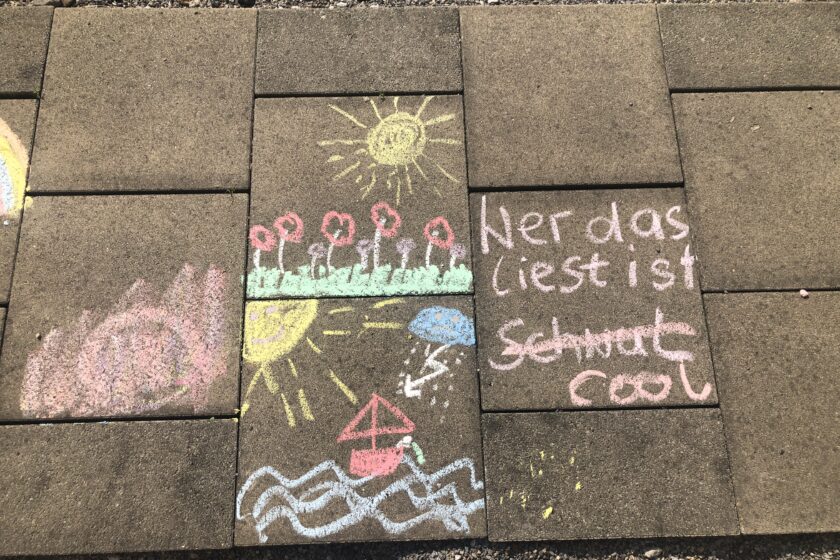 Wer das
liest ist
Schwul
cool